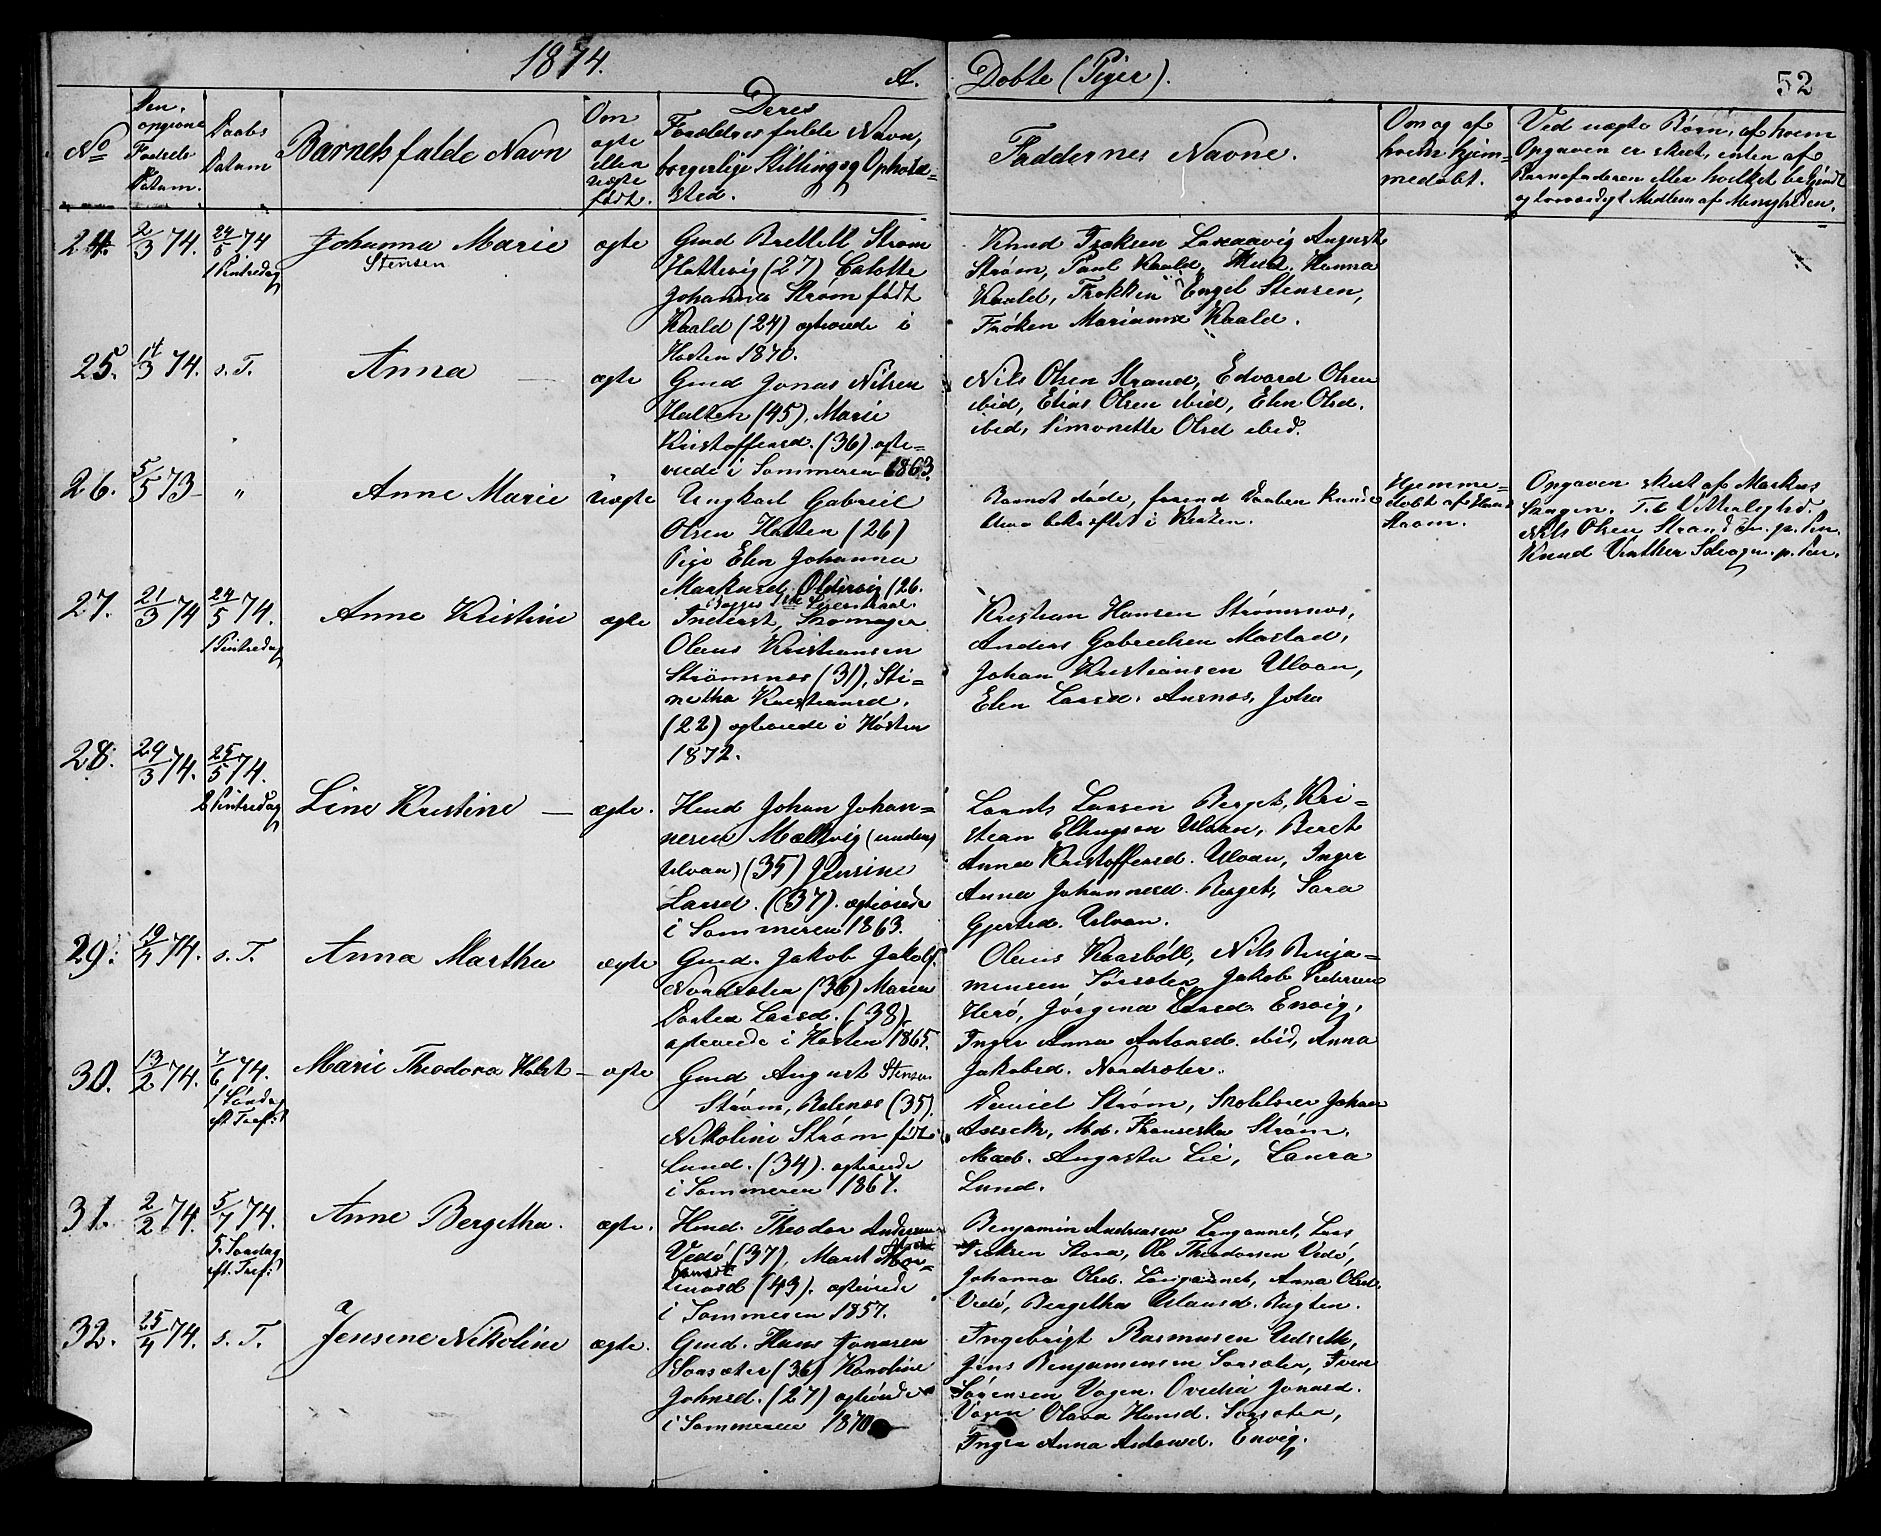 1874.
A. Døbte (Piger).
52
No
Den opgivne Fødsels Datum.
Daabs Datum
Barnets fulde Navn
Om ægte eller uægte født.
Deres Forældres fulde Navn, borgerlige Stilling og Opholdssted.
Faddernes Navne.
Om og af hvem hjemmedøbt.
Ved uægte Børn, af hvem Opgaven er skeet, enten af Barnefaderen eller hvilket bekjendt og troværdigt Medlem af Menigheden.
24. 2/3 74. 24/5 74
1 Pintsedag
Johanna Marie
Stensen
ægte
Gmd Strøm
Hattevig (27)
Johanna Strøm født
Kaald (24) ægteviede i
Høsten 1870.
Knud August
Strøm, Paul Kaald, Mad. Hanna
Kaald, Frøkken Engel Stensen,
Frøken Marianna Kaald.
25. 14/3 74. s. T.
Anna
ægte
Gmd Jonas Nilsen
Halten (45), Marie
Kristoffersd. (36) ægte-
viede i Sommeren 1863.
Nils Olsen Strand, Edvard Olsen
ibid, Elias Olsen ibid, Elen Olsd.
ibid, Simonette Olsd ibid.
26. 5/5 73 "
Anne Marie
Uægte
Ungkarl Gabriel
Olsen Halten (26)
Pige Elen Johanna
Markusd. Oldervig (26.
Begges 1ste Leiermaal.
Barnet døde, forend Daaben kunde
blive bekræftet i Kirken.
Hjemme-
døbt af Hans
Strøm.
Opgaven skeet af Markus
Til Vitterlighed.
Nils Olsen Strand m. p. Pen.
Knud Vinther m. p. Pen.
27. 21/3 74 24/5 74.
1 Pintsedag
Anne Kristine
ægte
Inderst, Skomager
Olaus Kristiansen
Strømsnes (31), Sti-
netha Kristiansd.
(22) ægteviede i Høsten
1872.
Kristian Hansen Strømsnes,
Anders Gabrielsen Mastad,
Johan Kristiansen Ulvan,
Elen Larsd. Ansnes, Joha
28. 29/3 74. 25/5 74.
2 Pintsedag
Line Kristine
ægte.
Hmd Johan Johan-
nesen Mællvig (under
Ulvan) (35) Jensine
Larsd. (37). ægteviede
i Sommeren 1863.
Larsen Berget, Kri-
stian Ellingsen Ulvan, Beret
Anna Kristoffersd. Ulvan, Inger
Anna Johannesd. Berget, Sara
Gjertsd. Ulvan.
29. 19/4 74. s. T.
Anna Martha
ægte
Gmd. Jakob Jakobs.
Nordsæter (36) Maren
Dortea Larsd. (38)
ægteviede i Høsten 1865.
Olaus Kaasbøll, Nils Benja-
minsen Sørsæter, Jakob Pedersen
Herø, Jørgina Larsd. Envig,
Inger Anna Antonsd. ibid, Anna
Jakobsd. Nordsæter.
30. 13/2 74. 7/6 74.
1 Søndag
eft. Tref:
Marie Theodora Holst
ægte
Gmd August Stensen
Strøm, Balsnes (35).
Nikoline Strøm født
Lund. (34). ægteviede
i Sommeren 1867.
Daniel Strøm, Skolelærer Johan
Md. Franseska Strøm,
Mad. Augusta Lie, Laura
Lund.
31. 2/2 74. 5/7 74.
5. Søndag
eft. Tref:
Anne Bergetha.
ægte.
Hmd. Theodor Andersen
Vedø (37), Maret
(49). ægteviede
i Sommeren 1857.
Benjamin Andreasen Langannet, Lars
Stora, Ole Theodorsen Vedø,
Johanna Olsd. Langannet, Anna Olsd.
Vedø, Bergetha Olausd. Bugten.
32. 25/4 74. s. T.
Jensene Nikoline
ægte.
Gmd. Hans Jonasen
Sørsæter (36) Karoline
Johnsd. (27) ægteviede
i Sommeren 1870
Ingebrigt Rasmusen Udseth,
Jens Benjaminsen Sørsæter, Iver
Sørensen Vagen. Ovedia Jonasd.
Vagen Olava Hansd. Sørsæter,
Inger Anna Antonsd. Envig.